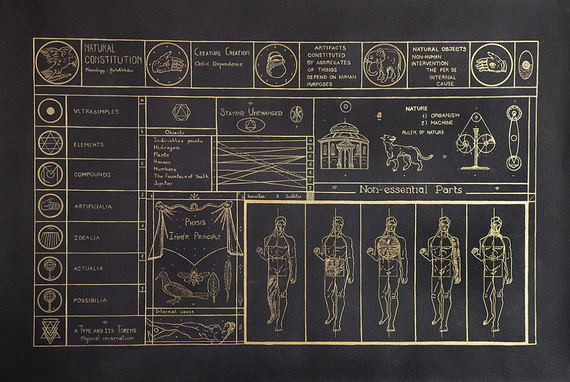 NATURAL
CONSTITUTION
CREATURE CREATION
Ontic Dependence
ARTIFACTS
CONSTITUTED
BY AGGREGATES
OF THINGS
DEPEND ON HUMAN
PURPOSES
NATURAL OBJECTS
NON-HUMAN
INTERVENTION
THE PER SE
INTERNAL
CAUSE
VLTRASIMPLES
ELEMENTS
COMPOUNDS
ARTIFICIALIA
IDEALIA
ACTUALIA
POSSIBILIA
A TYPE AND ITS TOKENS
Physical incarnation
Objects
Indivisible points
Hydrogen
Plants
Houses
Numbers
The Fountain of Youth
Jupiter
STAYING UNCHANGED
PHYSIS
INNER PRINCIPLE
Internal cause
NATURE
1) ORGANISM
2) MACHINE
RULER OF NATURE
Non-essential Parts